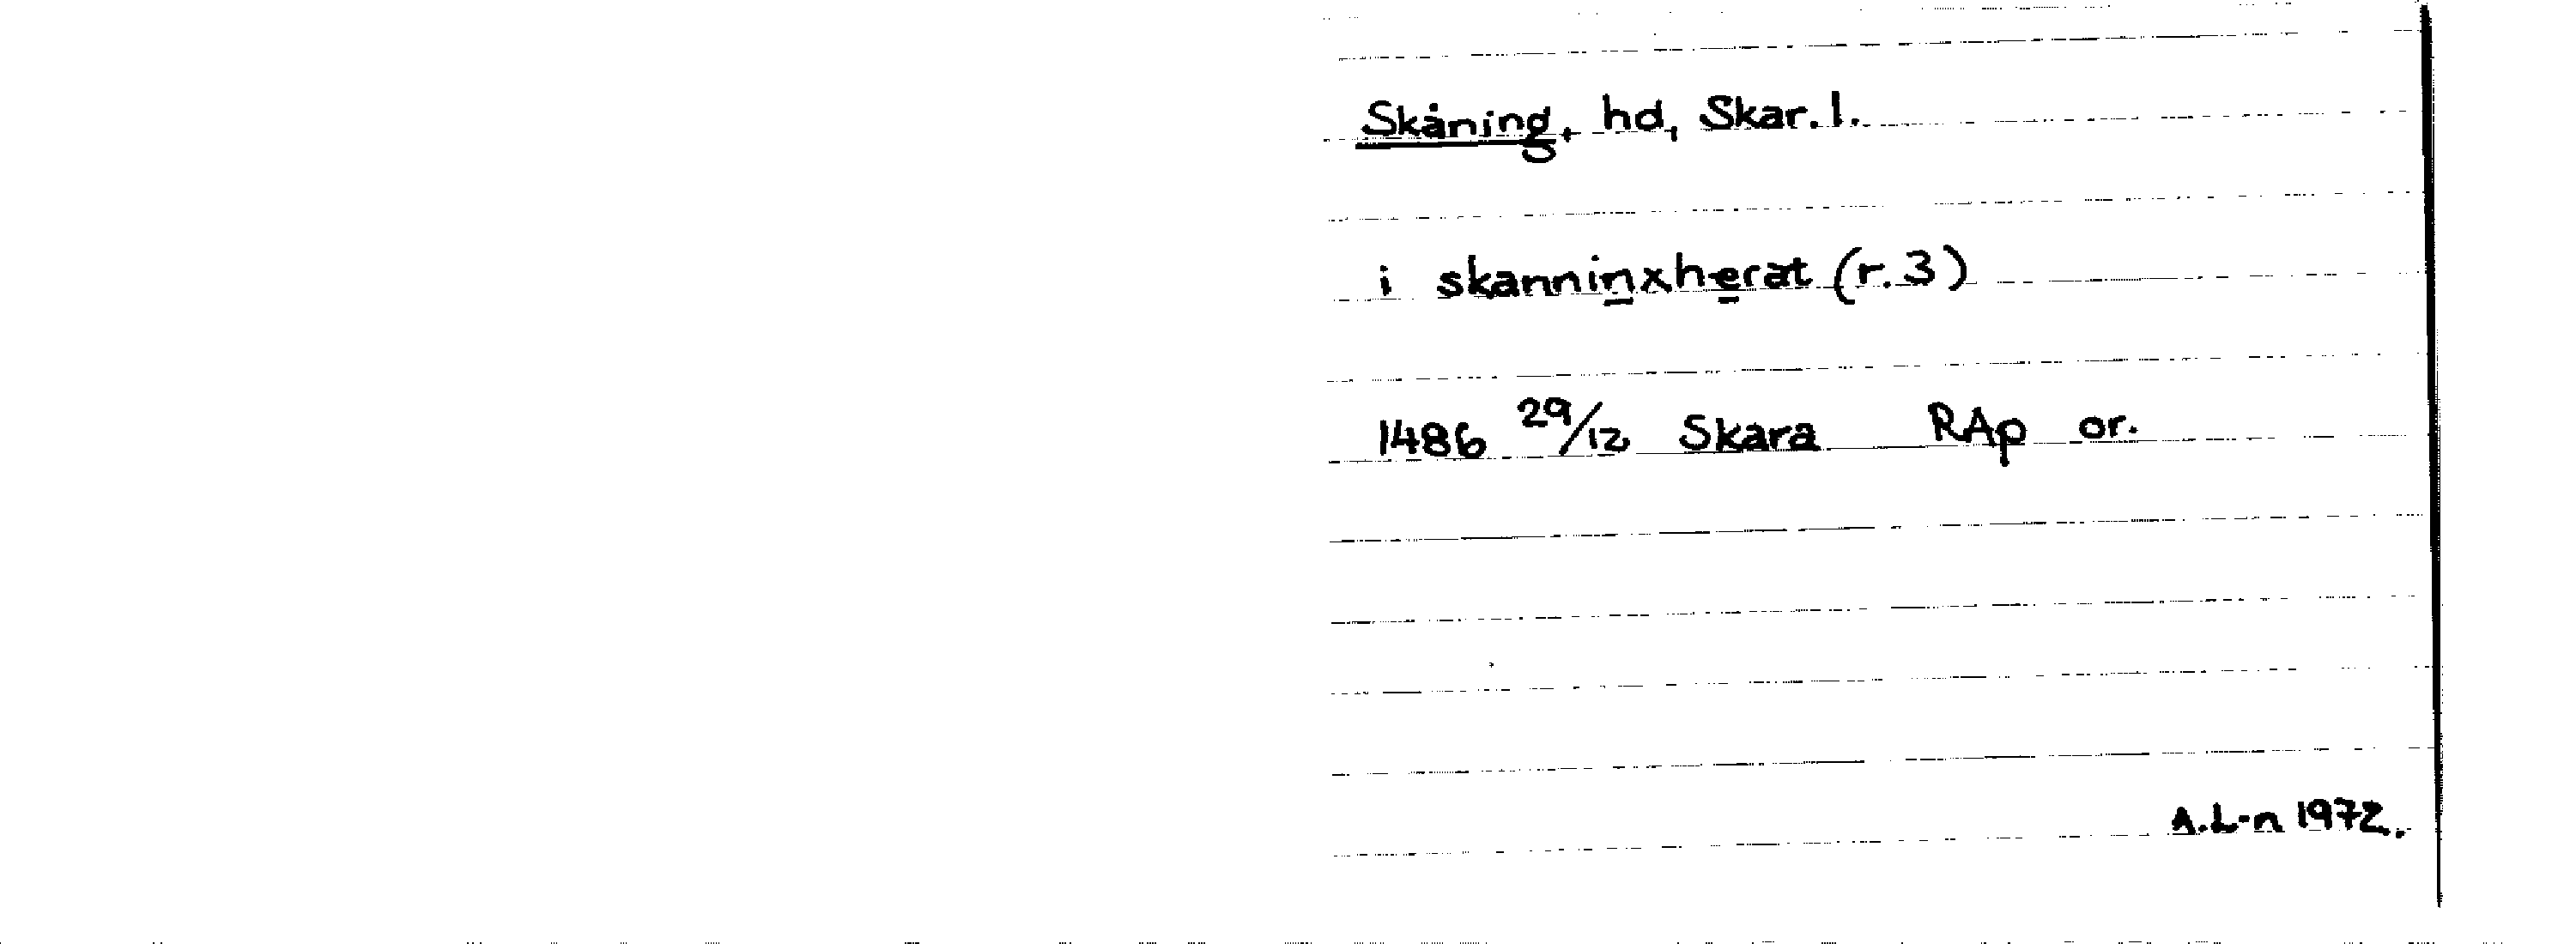 Skåning, hd, Skar. l.
i skanninxherat (r. 3)
1486 29/12 Skara RAp or.
A.L-n 1972.